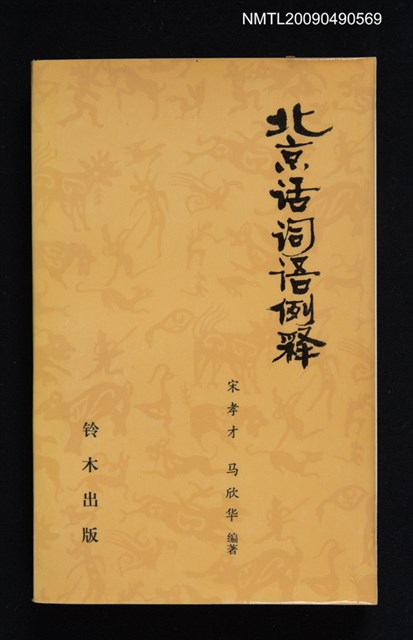 NMTL20090490569
北京话词语例释
宋孝才 马欣华 编著
铃木出版